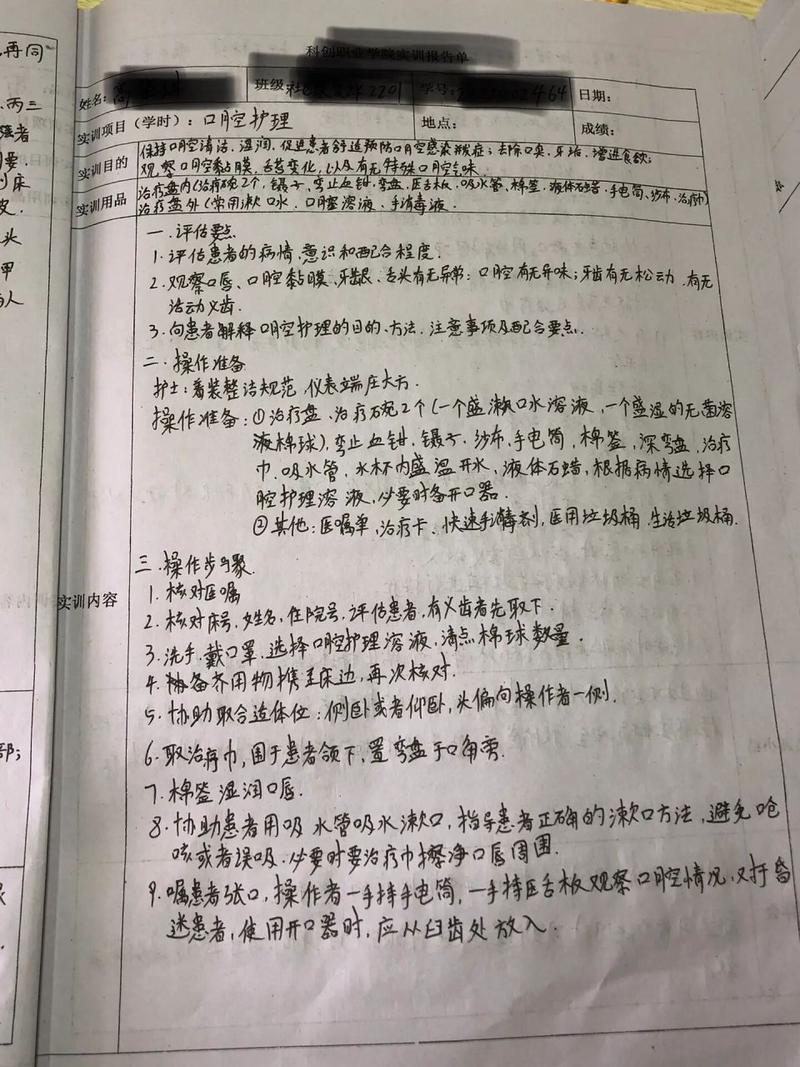 再同
丙三
强者
到床
皮.
头
甲
与人
部;
科创职业学院实训报告单
姓名: 班级: 2201 学号: 464 日期:
实训项目（学时）: 口腔护理 地点: 成绩:
实训目的 保持口腔清洁、湿润,促进患者舒适预防口腔感染等症;去除口臭、牙垢,增进食欲;
观察口腔黏膜,舌苔变化,以及有无特殊口腔气味.
实训用品 治疗盘内(治疗碗2个、镊子、弯止血钳、弯盘、压舌板、吸水管、棉签、液体石蜡、手电筒、纱布、治疗巾)
治疗盘外(常用漱口水、口腔溶液、手消毒液.
实训内容
一.评估要点
1.评估患者的病情、意识和配合程度.
2.观察口唇、口腔黏膜、牙龈、舌头有无异常:口腔有无异味;牙齿有无松动,有无
活动义齿.
3.向患者解释口腔护理的目的、方法、注意事项及配合要点.
二.操作准备
护士:着装整洁规范,仪表端庄大方.
操作准备:①治疗盘、治疗碗2个(一个盛漱口水溶液,一个盛湿的无菌溶
液棉球),弯止血钳、镊子、纱布,手电筒,棉签,深弯盘,治疗
巾、吸水管,水杯内盛温开水,液体石蜡,根据病情选择口
腔护理溶液,必要时备开口器.
②其他:医嘱单,治疗卡、快速手消毒剂,医用垃圾桶、生活垃圾桶.
三.操作步骤
1.核对医嘱
2.核对床号,姓名,住院号,评估患者,有义齿者先取下.
3.洗手、戴口罩、选择口腔护理溶液,清点棉球数量.
4.备齐用物携至床边,再次核对.
5.协助取合适体位:侧卧或者仰卧,头偏向操作者一侧.
6.取治疗巾,围于患者颌下,置弯盘于口角旁
7.棉签湿润口唇.
8.协助患者用吸水管吸水漱口,指导患者正确的漱口方法,避免呛
咳或者误吸.必要时要治疗巾擦净口唇周围.
9.嘱患者张口,操作者一手持手电筒,一手持压舌板观察口腔情况,对于昏
迷患者,使用开口器时,应从臼齿处放入.